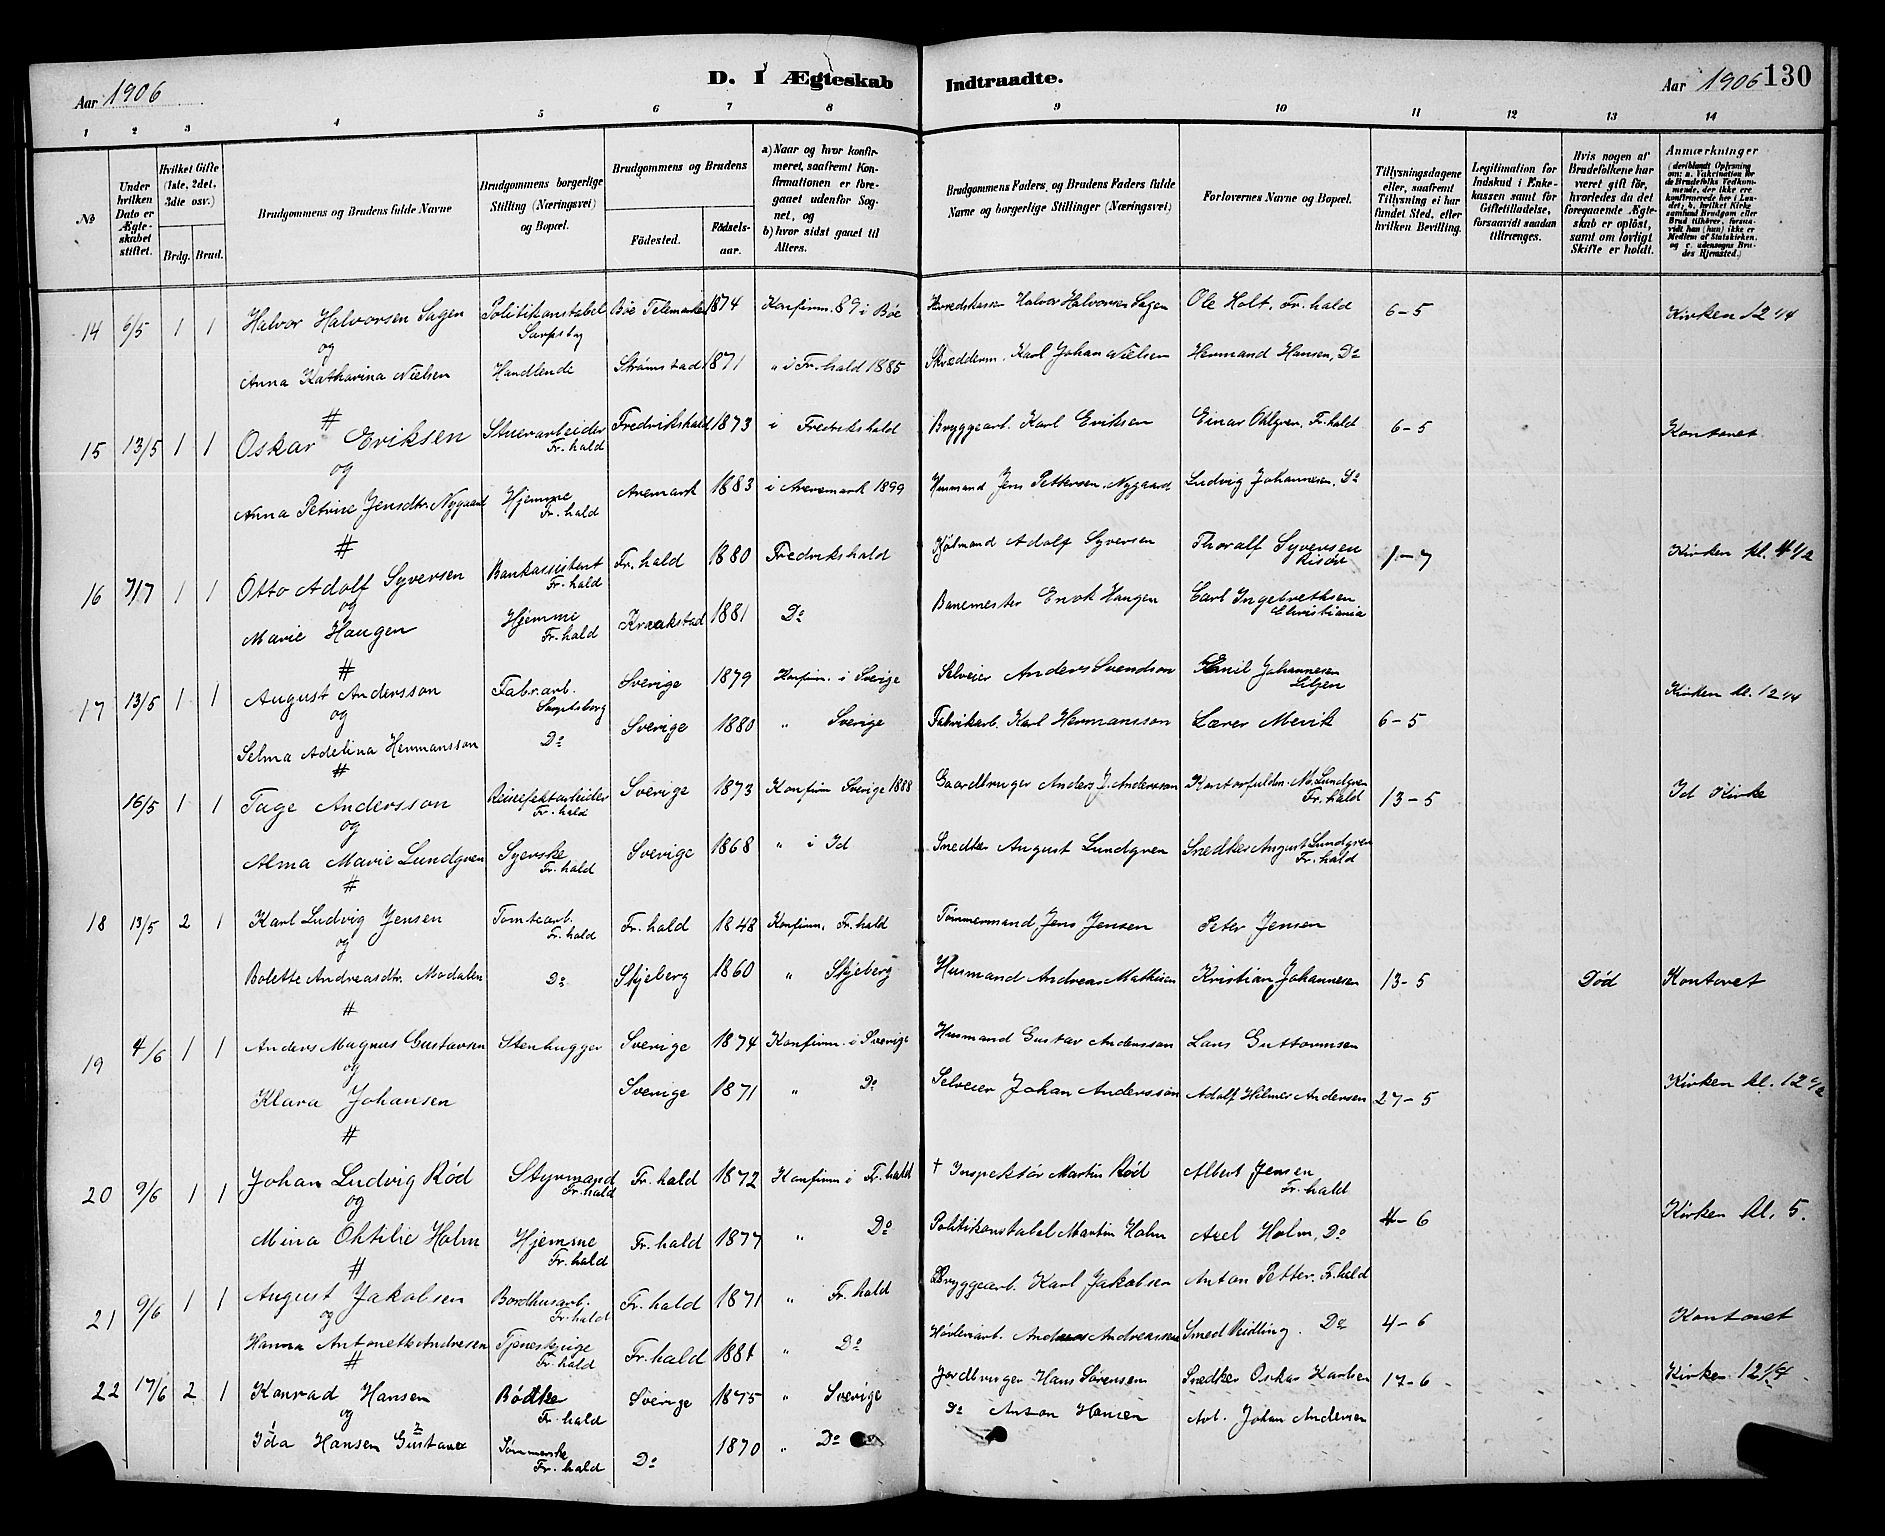 Aar 1906
D. I Ægteskab Indtraadte.
Aar 1906 130
1 2 3 4 5 6 7 8 9 10 11 12 13 14
No
Under hvilken Dato er Ægteskabet stiftet.
Hvilket Gifte (1ste, 2det, 3die osv.)
Brdg. Brud.
Brudgommens og Brudens fulde Navne
Brudgommens borgerlige Stilling (Næringsvei) og Bopæl.
Brudgommens og Brudens
Fødested.
Fødselsaar.
a) Naar og hvor konfirmeret, saafremt Konfirmationen er foregaaet udenfor Sognet, og
b) hvor sidst gaaet til Alters.
Brudgommens Faders, og Brudens Faders fulde Navne og borgerlige Stillinger (Næringsvei)
Forlovernes Navne og Bopæl.
Tillysningsdagene eller, saafremt Tillysning ei har fundet Sted, efter hvilken Bevilling.
Legitimation for Indskud i Enkekassen samt for Giftetilladelse, forsaavidt saadan tiltrænges.
Hvis nogen af Brudefolkene har været gift før, hvorledes da det foregaaende Ægteskab er opløst, samt om lovligt Skifte er holdt.
Anmærkninger
(deriblandt Oplysning om: a. Vakcination for de Brudefolks Vedkommende, der ikke ere konfirmerede her i Landet; b. hvilket Kirkesamfund Brudgom eller Brud tilhører, forsaavidt han (hun) ikke er Medlem af Statskirken, og c. udensogns Brudes Hjemsted.)
14 6/5 1 1 Halvor Halvorsen Sagen Politikonstabel Sarpsborg Bøe Telemarken 1874 Konfirm. 89 i Bøe Halvor Halvorsen Sagen Ole Holt, Fr.hald 6-5 Kirken 12 1/4
og
Anna Katharina Nielsen Handlende Strømstad 1871 " i Fr.hald 1885 Karl Johan Nielsen Hermand Hansen, Do
#
15 13/5 1 1 Oskar Eriksen Stuerarbeider Fr.hald Fredrikshald 1873 i Fredrikshald Bryggearb. Karl Eriksen Einar Ohlgren, Fr.hald 6-5 Kontoret
og
Anna Petrine Jensdtr. Nygaard Hjemme Fr.hald Aremark 1883 i Aremark 1899 Husmand Jens Pettersen Nygaard Ludvig Johannesen, Do
#
16 7/7 1 1 Otto Adolf Syversen Bankassistent Fr.hald Fr.hald 1880 Fredrikshald Adolf Syversen Thoralf Syversen Risør 1-7 Kirken kl. 4 1/2
og
Marie Haugen Hjemme Fr.hald Kraakstad 1881 Do Banemester Enok Haugen Carl Ingebrethsen Christiania
#
17 13/5 1 1 August Andersson Fabr.arb. Sarpsborg Sverige 1879 Konfirm. i Sverige Selveier Anders Svendson Emil Johannesen Liljen Kirken kl. 12 1/4
og
Selma Adelina Hermansson Do Sverige 1880 " Sverige Fabrikarb. Karl Hermansson Lærer Mevik 6-5
#
16/5 1 1 Tage Andersson Reiseffektarbeider Fr.hald Sverige 1873 Konfirm Sverige 1888 Gaardbruger Anders J. Andersson Kontorfuldm. M. Lundgren Fr.hald 13-5 Id Kirke
og
Alma Marie Lundgren Syerske Fr.hald Sverige 1868 " i Id Snedker August Lundgren Snedker August Lundgren Fr.hald
#
18 13/5 2 1 Karl Ludvig Jensen Tomtearb. Fr.hald Fr.hald 1848 Konfirm. Fr.hald Tømmermand Jens Jensen Peter Jensen
og
Bolette Andreasdtr. Modalen Do Skjeberg 1860 " Skjeberg Husmand Andreas Mathisen Kristian Johannesen 13-5 Død Kontoret
#
19 4/6 1 1 Anders Magnus Gustavsen Stenhugger Sverige 1874 Konfirm. i Sverige Husmand Gustav Andersson Lars Guttormsen
og
Klara Johansen Sverige 1871 " Do Selveier Johan Andersson Adolf Hilmer Andersen 27-5 Kirken kl. 12 1/2
#
20 9/6 1 1 Johan Ludvig Rød Styrmand Fr.hald Fr.hald 1872 Konfirm i Fr.hald † Inspektør Martin Rød Albert Jensen Fr.hald
og
Mina Ohtilie Holm Hjemme Fr.hald Fr.hald 1877 " Do Politikonstabel Martin Holm Axel Holm, Do 4-6 Kirken kl. 5.
#
21 9/6 1 1 August Jakobsen Bordhusarb. Fr.hald Fr.hald 1871 " Fr.hald Bryggearb. Karl Jakobsen Anton Petter, Fr.hald
og
Hanna Antonette Andresen Tjenestpige Fr.hald Fr.hald 1881 " Do Høvleriarb. Andreas Andreassen Smed Reidling. Do 4-6 Kontoret
#
22 17/6 2 1 Konrad Hansen Bødker Fr.hald Sverige 1875 " Sverige Jordbruger Hans Sørensen Snedker Oskar Karlsen 17-6 Kirken 12 1/4
og
Ida Hansen Gustava Fr.hald Do 1870 " Do Do Anton Hansen Arb. Johan Andersen